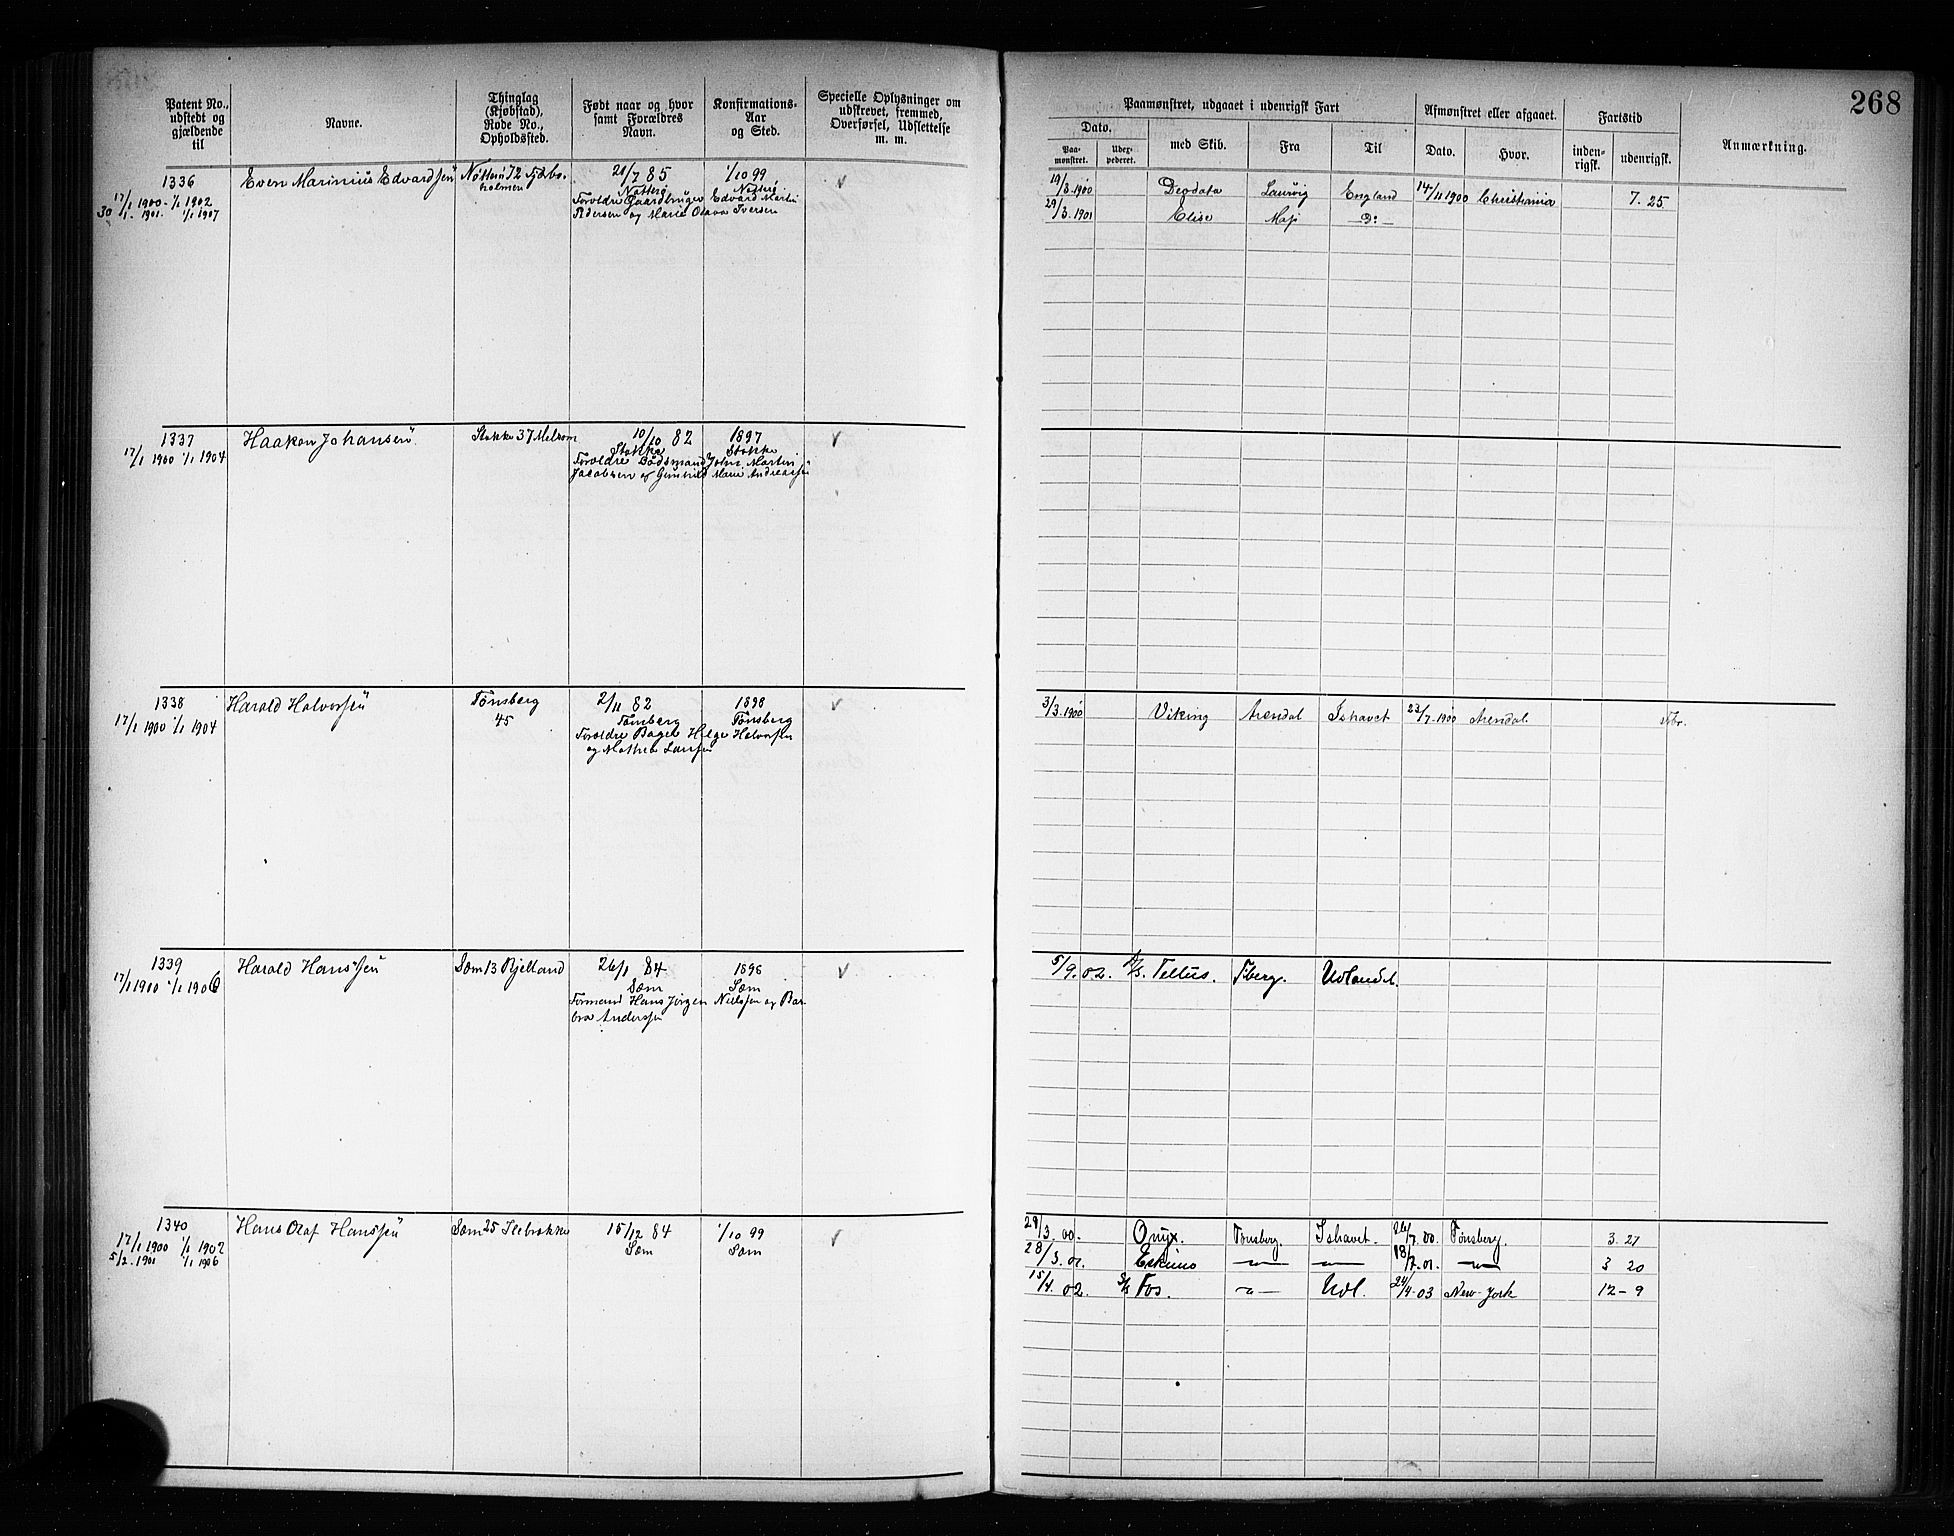 268
Patent No., udstedt og gjældende til
Navne.
Thinglag (Kjøbstad), Rode No., Opholdssted.
Født naar og hvor samt Forældres Navn.
Konfirmations- Aar og Sted.
Specielle Oplysninger om udskrevet, fremmed, Overførsel, Udslettelse m. m.
Paamønstret, udgaaet i udenrigsk Fart
Dato.
Paa- mønstret.
med Skib.
Fra
Til
Afmønstret eller afgaaet.
Dato.
Hvor.
Fartstid
inden- rigsk.
udenrigsk.
Anmærkning.
1336
17/1 1900 - 1/1 1902
30/1. 1901. 1/1 1907
Even Marinius Edvardsen
Nøtterø 72
holmen
21/7 85
Nøtterø
Forældre Gaardbruger Edvard Martin
Pedersen og Marie Olava Iversen
1/10 99
Nøtterø
19/3.1900 Deodata Laurvig England 14/11 1900 Christiania 7. 25
29/3.1901 Elise Moss Do
1337
17/1 1900 1/1 1904
Haakon Johansen
Stokke 37 Melsom
10/10 82
Stokke
Forældre Baadsmand John Martin
Jacobsen og Gunhild Marie Andreassen
1897
Stokke
1338
17/1 1900 1/1 1904
Harald Halvorsen
Tønsberg
45
2/11 82
Tønsberg
Forældre Bager Helge Halvorsen
og Mathea Larsen
1898
Tønsberg
3/3.1900 Viking Arendal Ishavet 23/7.1900 Arendal
1339
17/1 1900 1/1 1906
Harald Hanssen
Sæm 13 Bjelland
26/1 84
Sæm
Formand Hans Jørgen Nielssen og Bar-
bra Anderssen
1898
Sæm
5/9.02. Tellus. Tberg. Udlandet.
1340
17/1 1900 1/1 1902
5/2.1901 1/1 1906
Hans Olaf Hanssen
Sæm 25 Ilebrække
15/12 84
Sæm
1/10 99
Sæm
29/3.00. Onyx. Tønsberg. Ishavet. 26/7.00. Tønsberg. 3. 27
28/3.01. Eskimo — — 18/7.01. — 3 20
15/4.02 S/S Fos. — Udl. 24/4.03 New-York 12 - 9